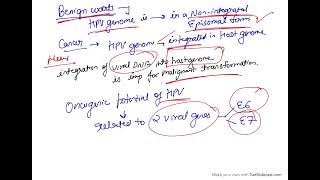 Benign warts →
HPV genome is → in a Non-integrated
Episomal form
Cancer → HPV genome → integrated in host genome
Hence
integration of viral DNA into host genome
is imp for malignant transformation.
Oncogenic potential of HPV
↓
related to 2 viral genes
E6
E7
Make your own with GetVideoast.com